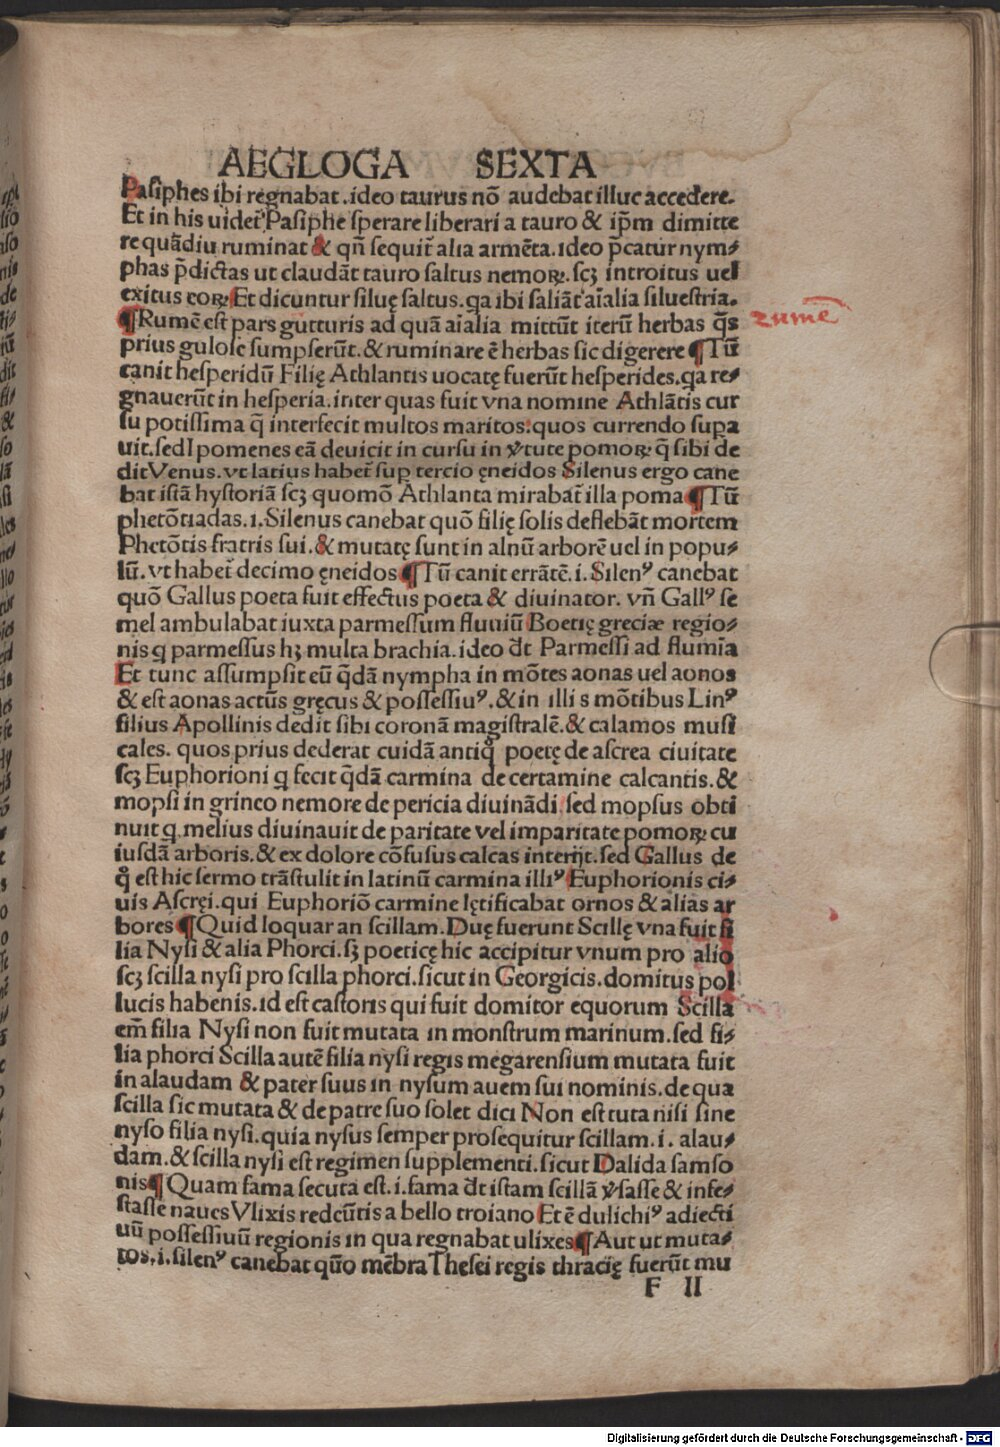 AEGLOGA SEXTA
Pasiphes ibi regnabat .ideo taurus nõ audebat illuc accedere.
Et in his uidet᷑ Pasiphe sperare liberari a tauro & ip̃m dimitte
re quãdiu ruminat & qñ sequit᷑ alia armẽta. ideo p̃catur nym⸗
phas p̃dictas ut claudãt tauro saltus nemoꝝ. scꝫ introitus uel
exitus eoꝝ Et dicuntur siluę saltus. qa ibi saliãt aĩalia siluestria.
¶ Rumẽ est pars gutturis ad quã aĩalia mittũt iterũ herbas q̃s
zumẽ
prius gulose sumpserũt. & ruminare ẽ herbas sic digerere ¶ Tũ
canit hesperidũ Filię Athlantis uocatę fuerũt hesperides. qa re⸗
gnauerũt in hesperia. inter quas fuit vna nomine Athlãtis cur
su potissima q̃ interfecit multos maritos: quos currendo supa
uit. sed Ipomenes eã deuicit in cursu in ꝟtute pomoꝝ q̃ sibi de
dit Venus. vt latius habet᷑ sup tercio ęneidos Silenus ergo cane
bat istã hystoriã scꝫ quomõ Athlanta mirabat᷑ illa poma ¶ Tũ
phetõtiadas. i. Silenus canebat quõ filię solis deflebãt mortem
Phetõtis fratris sui. & mutatę sunt in alnũ arborẽ uel in popu⸗
lũ. vt habet᷑ decimo ęneidos ¶ Tũ canit errãtẽ. i. Silenꝰ canebat
quõ Gallus poeta fuit effectus poeta & diuinator. vñ Gallꝰ se
mel ambulabat iuxta parmessum fluuiũ Boetię greciæ regio⸗
nis q parmessus hꝫ multa brachia. ideo dt̃ Parmessi ad flumĩa
Et tunc assumpsit eũ q̃dã nympha in mõtes aonas uel aonos
& est aonas actũs gręcus & possessiuꝰ. & in illi s mõtibus Linꝰ
filius Apollinis dedit sibi coronã magistralẽ. & calamos musi
cales. quos prius dederat cuidã antiq̃ poetę de ascrea ciuitate
scꝫ Euphorioni q fecit q̃dã carmina de certamine calcantis. &
mopsi in grineo nemore de pericia diuinãdi sed mopsus obti
nuit q. melius diuinauit de paritate vel imparitate pomoꝝ cu
iusdã arboris. & ex dolore cõfusus calcas interijt. sed Gallus de
q̃ est hic sermo trãstulit in latinũ carmina illiꝰ Euphorionis ci⸗
uis Ascręi. qui Euphoriõ carmine lętificabat ornos & alias ar
bores ¶ Quid loquar an scillam. Duę fuerunt Scillę vna fuit fi
lia Nysi & alia Phorci. sꝫ poeticę hic accipitur vnum pro alio
scꝫ scilla nysi pro scilla phorci. sicut in Georgicis. domitus pol
lucis habenis. id est castoris qui fuit domitor equorum Scilla
em̃ filia Nysi non fuit mutata in monstrum marinum. sed fi⸗
lia phorci Scilla autẽ filia nysi regis megarensium mutata fuit
in alaudam & pater suus in nysum auem sui nominis. de qua
scilla sic mutata & de patre suo solet dici Non est tuta nisi sine
nyso filia nysi. quia nysus semper prosequitur scillam. i. alau⸗
dam. & scilla nysi est regimen supplementi. sicut Dalida samso
nis ¶ Quam fama secuta est. i. fama dt̃ istam scillã ꝟsasse & infe⸗
stasse naues Vlixis redeũtis a bello troiano Et ẽ dulichiꝰ adiecti
uũ possessiuũ regionis in qua regnabat ulixes ¶ Aut ut muta⸗
tos. i. silenꝰ canebat quõ mẽbra Thesei regis thracię fuerũt mu
F II
Digitalisierung gefördert durch die Deutsche Forschungsgemeinschaft - DFG